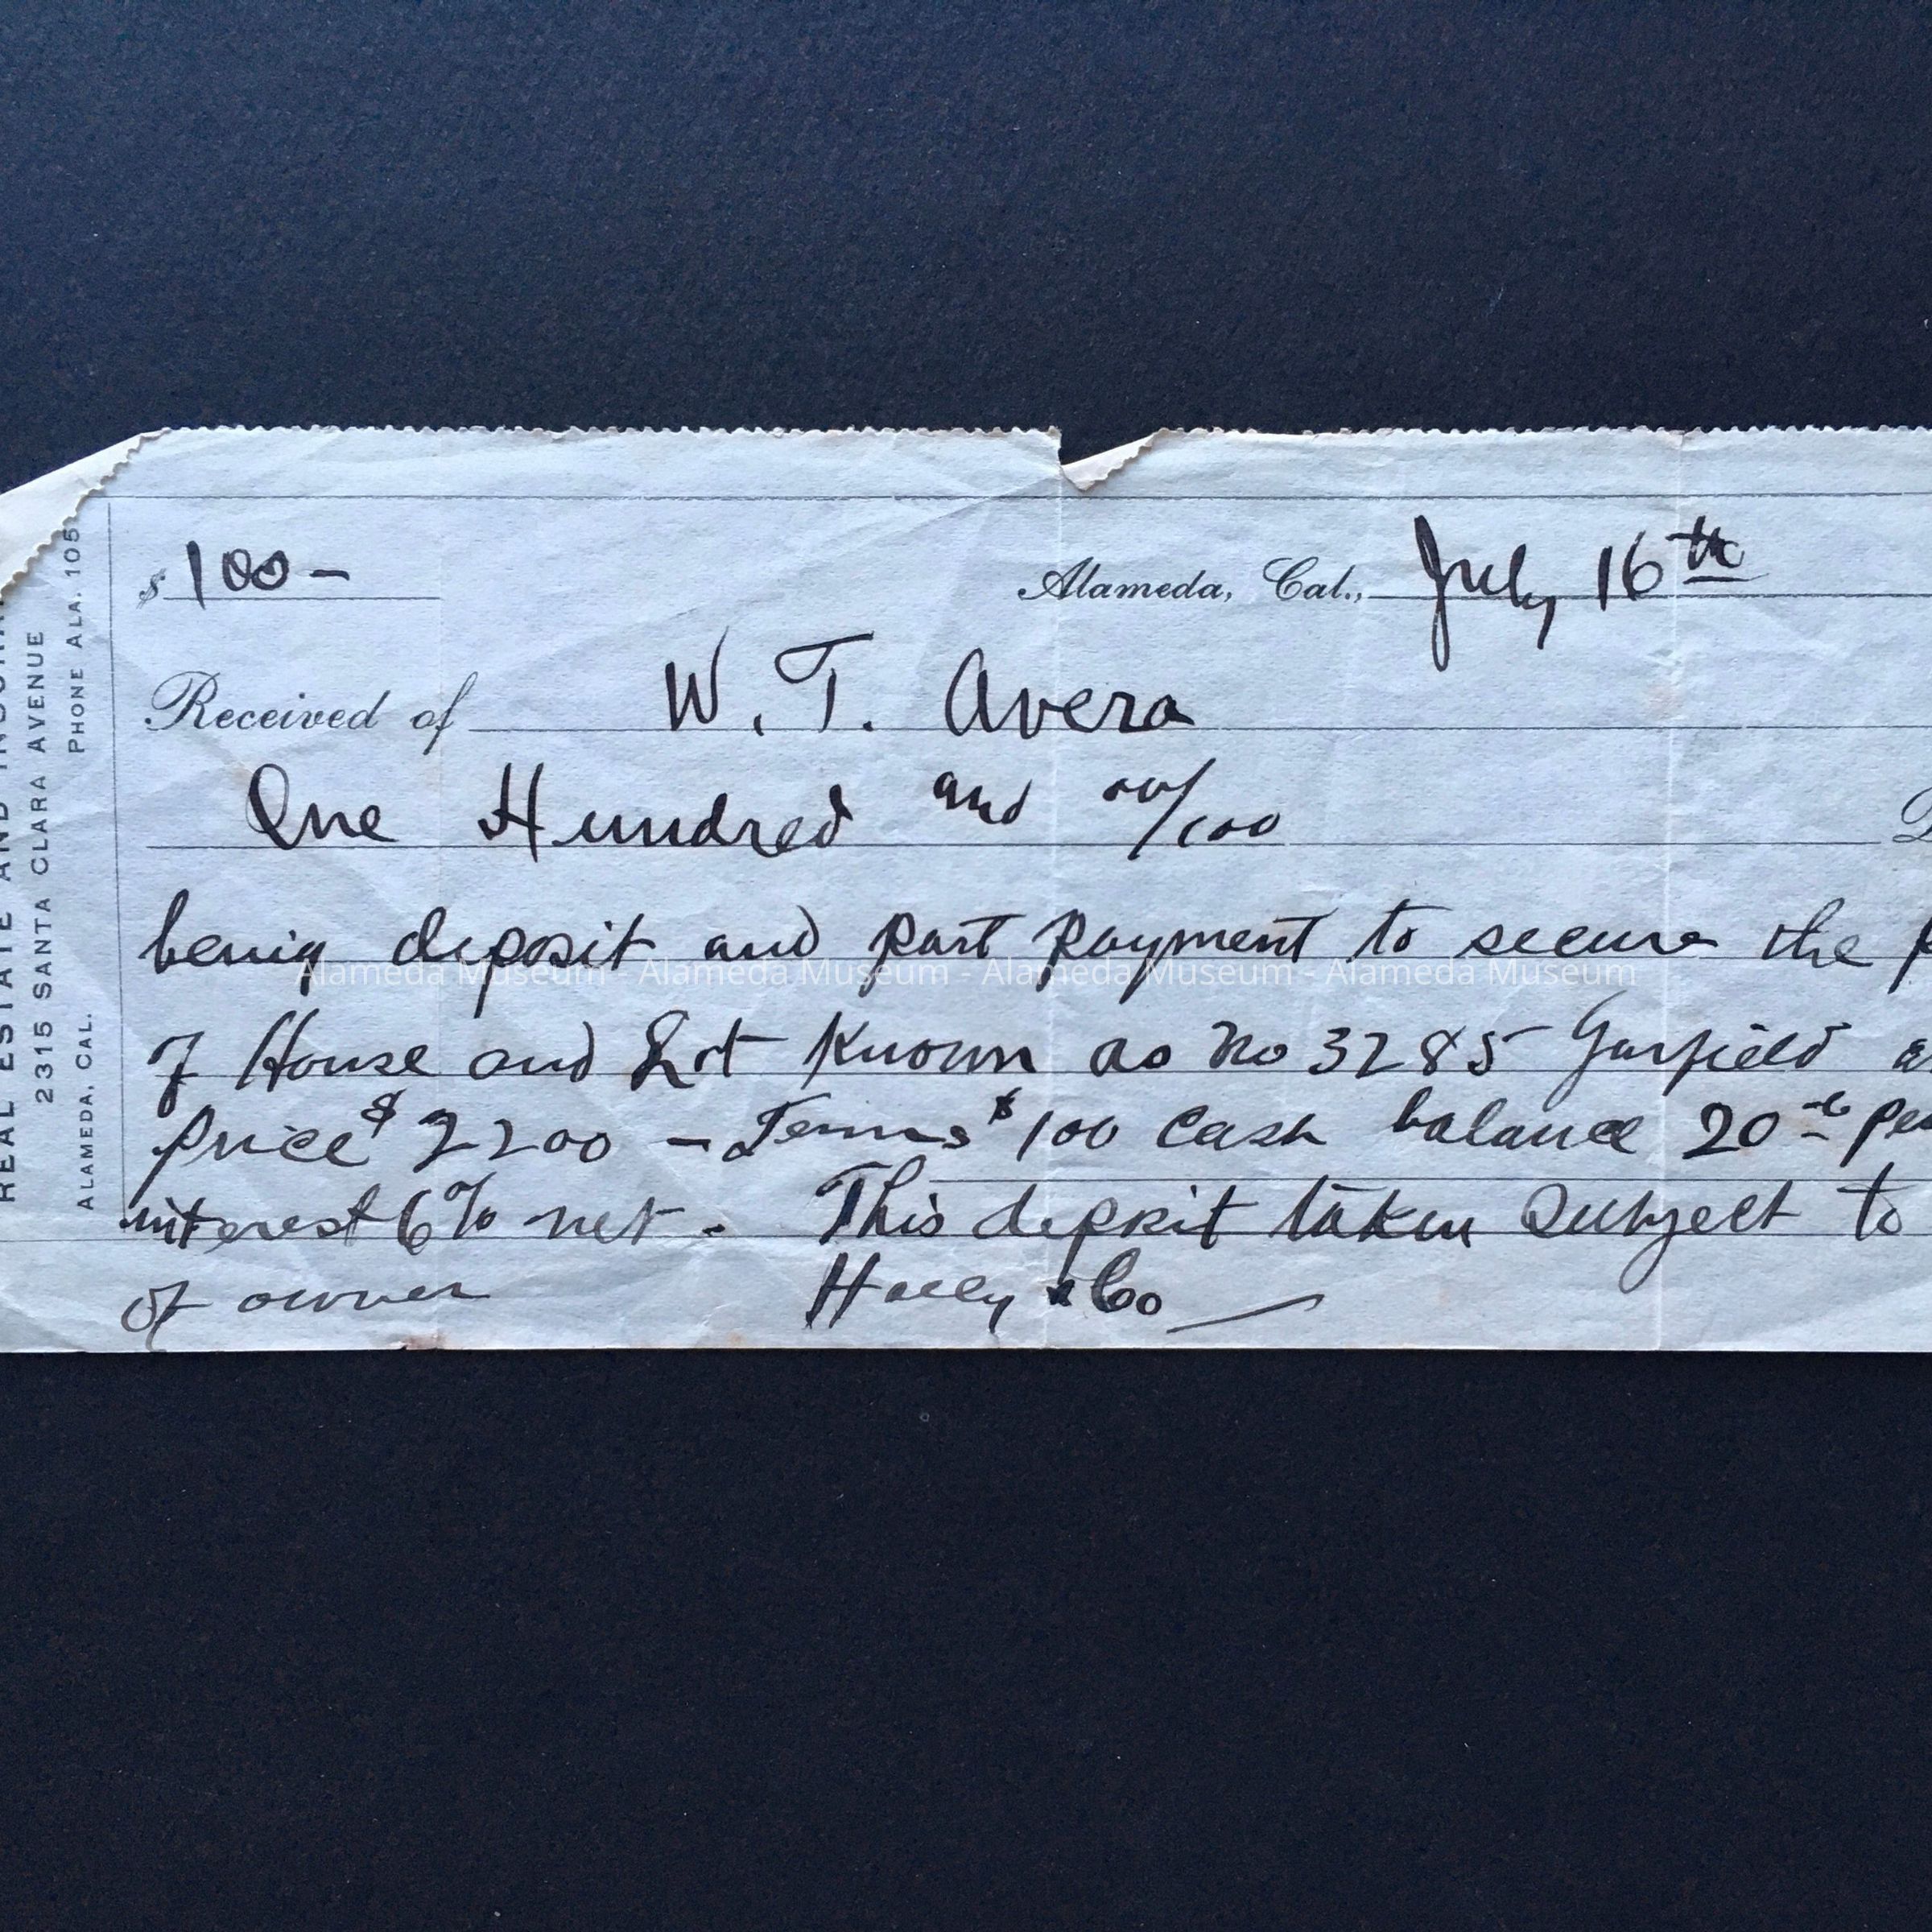 REAL ESTATE AND
2315 SANTA CLARA AVENUE
ALAMEDA, CAL. PHONE ALA. 105
$ 100 –
Alameda, Cal., July 16th
Received of W. T. Avera
One Hundred and 00/100
being deposit and part payment to secure the
of House and Lot Known as No 3285 Garfield
price $2200 – Terms $100 Cash balance 20 00 per
interest 6% net. This deposit taken Subject to
of owner & Co
Alameda Museum - Alameda Museum - Alameda Museum - Alameda Museum